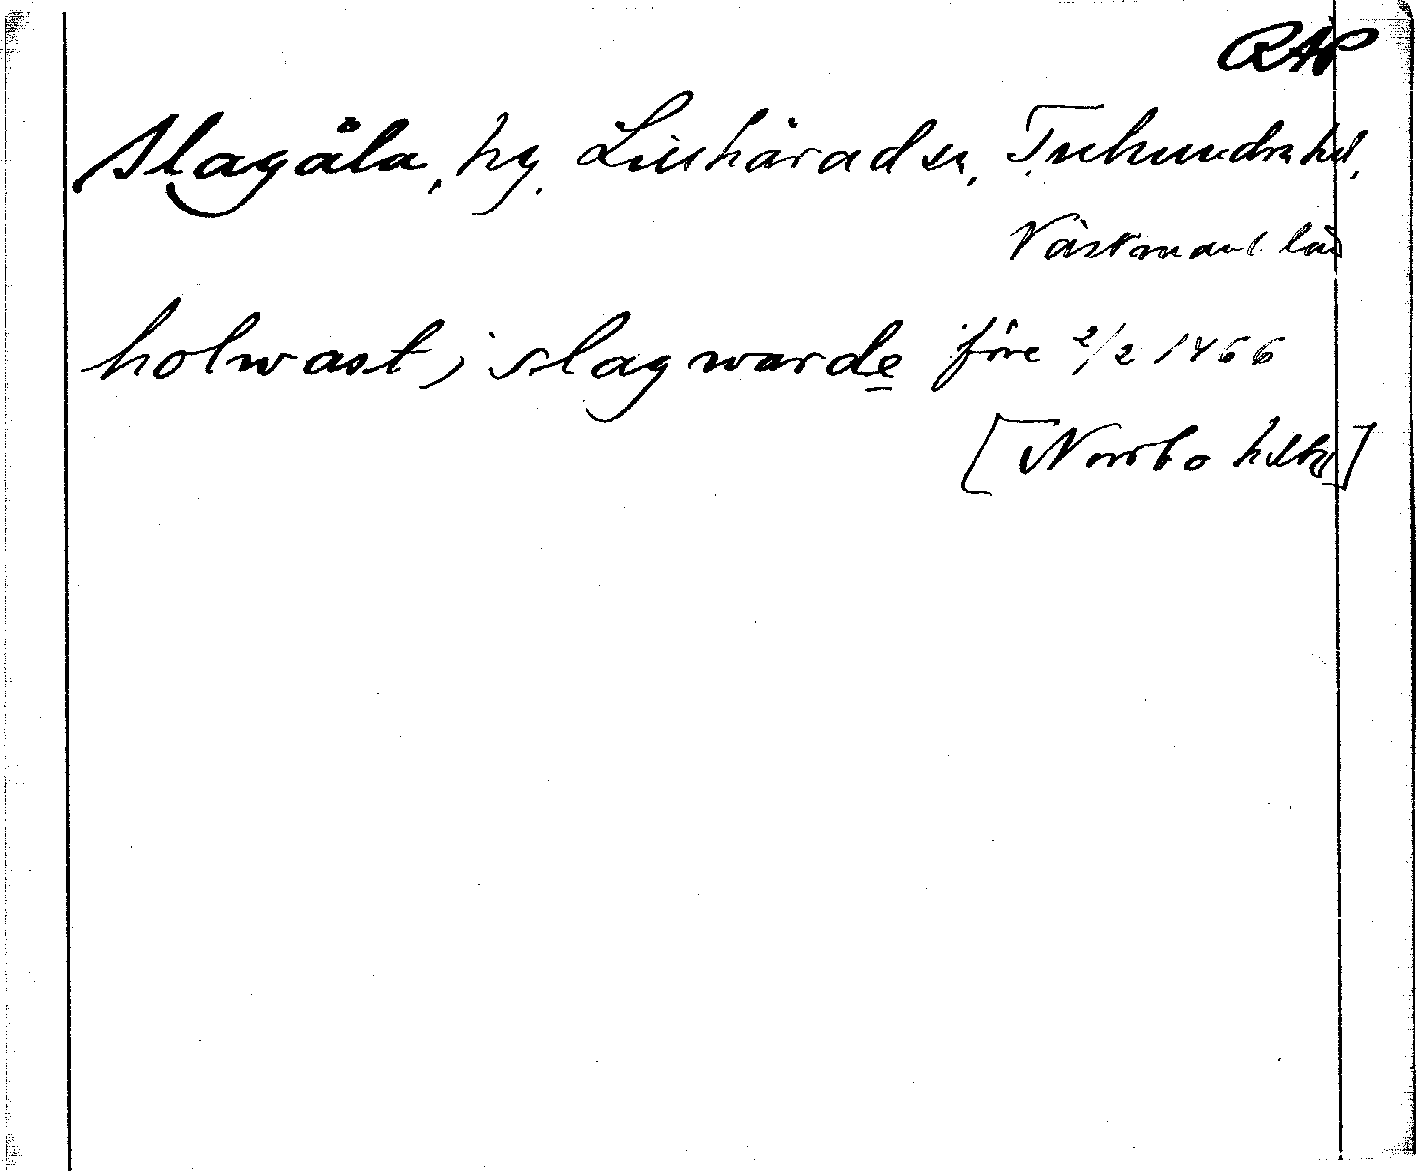 RAP
Slagåla, hg. Lilhärads sn, Tuhundra hd,
Västmanl län
holwast j slagwarde före 2/2 1466
[Norrbo hdhg]